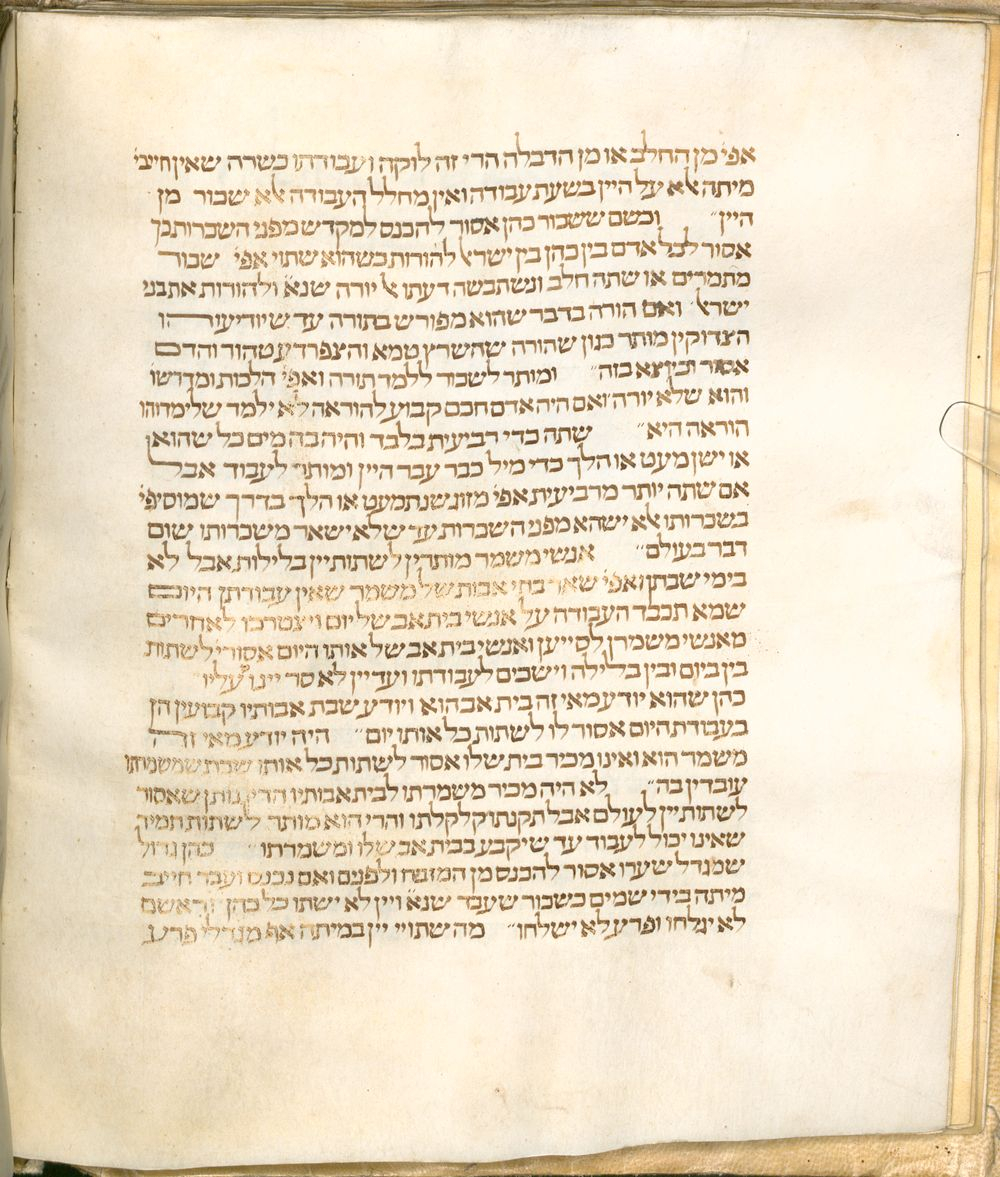 אפי׳ מן החלב או מן הדבלה הרי זה לוקה ועבודתו כשרה שאין חייבי׳
מיתה אלא על היין בשעת עבודה ואין מחלל העבודה אלא שכור מן
היין״ וכשם ששכור כהן אסור להכנס למקדש מפני השכרות כך
אסור לכל אדם בין כהן בין ישראל להורות כשהוא שתוי אפי׳ שכור
מתמרים או שתה חלב ונשתבשה דעתו אל יורה שנא׳ ולהורות את בני
ישראל ואם הורה בדבר שהוא מפורש בתורה עד שיודיעוהו
הצדוקין מותר כגון שהורה שהשרץ טמא והצפרדע טהור והדם
אסור וכיוצא בזה״ ומותר לשכור ללמד תורה ואפי׳ הלכות ומדרשו׳
והוא שלא יורה ואם היה אדם חכם קבוע להוראה לא ילמד שלימודו
הוראה היא״ שתה כדי רביעית בלבד והיה בה מים כל שהוא
או ישן מעט או הלך כדי מיל כבר עבר היין ומותר לעבוד אבל
אם שתה יותר מרביעית אפי׳ מזוג שנתמעט או הלך בדרך שמוסיפי׳
בשכרותו אלא ישהא מפני השכרות עד שלא ישאר משכרותו שום
דבר בעולם״ אנשי משמר מותרין לשתות יין בלילות אבל לא
בימי שבתן ואפי׳ שאר בתי אבות של משמר שאין עבודתן היום
שמא תכבד העבודה על אנשי בית אב של יום ויצטרכו לאחרים
מאנשי משמרן לסייען ואנשי בית אב של אותו היום אסורי׳ לשתות
בין ביום ובין בלילה וישכים לעבודתו ועדיין לא סר יינו מעליו״
כהן שהוא יודע מאי זה בית אב הוא ויודע שבת אבותיו קבועין הן
בעבודת היום אסור לו לשתות כל אותו יום״ היה יודע מאי זה
משמר הוא ואינו מכיר בית שלו אסור לשתות כל אותו שבת שמשמרתו
עובדין בה״ לא היה מכיר משמרתו לבית אבותיו הדין נותן שאסור
לשתות יין לעולם אבל תקנתו קלקלתו והרי הוא מותר לשתות תמיד
שאינו יכול לעבוד עד שיקבע בבית אב שלו ומשמרתו״ כהן גדול
שמגדל שערו אסור להכנס מן המזבח ולפנים ואם נכנס ועבד חייב
מיתה בידי שמים כשכור שעבד שנא׳ ויין לא ישתו כל כהן וראשם
לא יגלחו ופרע לא ישלחו״ מה שתויי יין במיתה אף מגדלי פרע